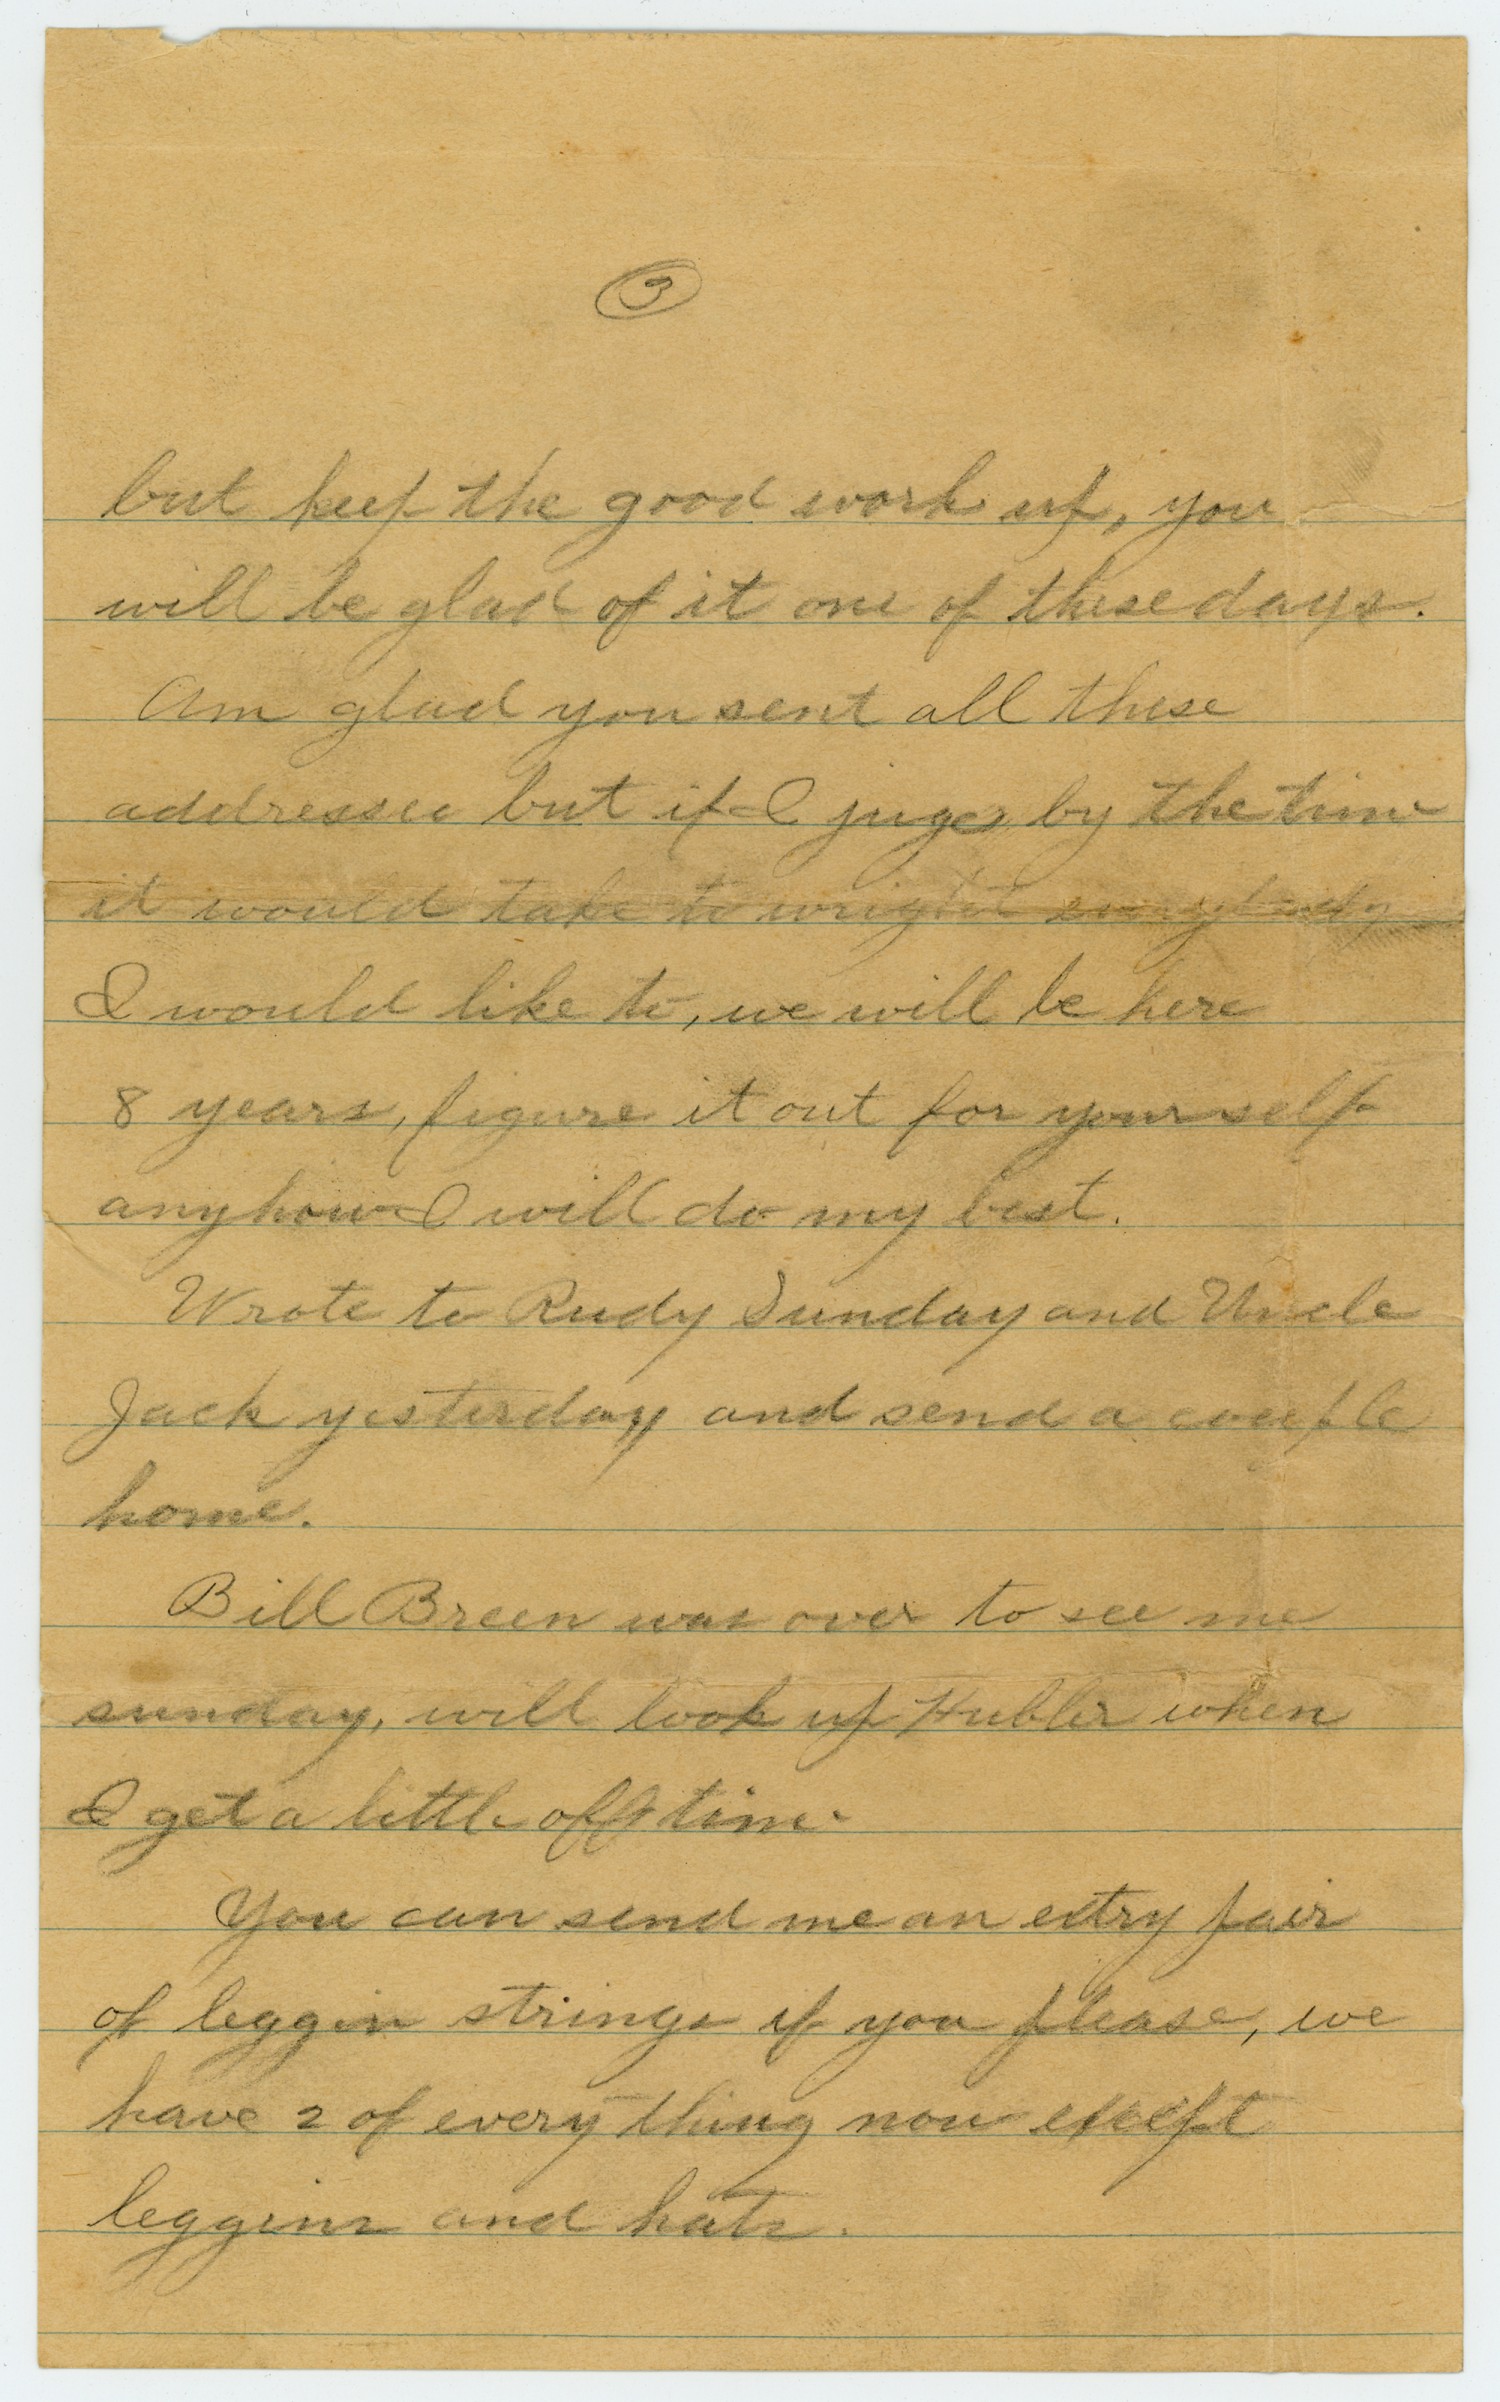 3
but keep the good work up, you
will be glad of it one of these days.
Am glad you sent all these
addresses but if I juge by the time
it would take to wright everybody
I would like to, we will be here
8 years, figure it out for yourself
anyhow I will do my best.
Wrote to Rudy Sunday and Uncle
Jack yesterday, and send a couple
home.
Bill Breen was over to see me
sunday, will look up Hubler when
I get a little off time
You can send me an extry pair
of leggin strings if you please, we
have 2 of every thing now except
leggins and hats.